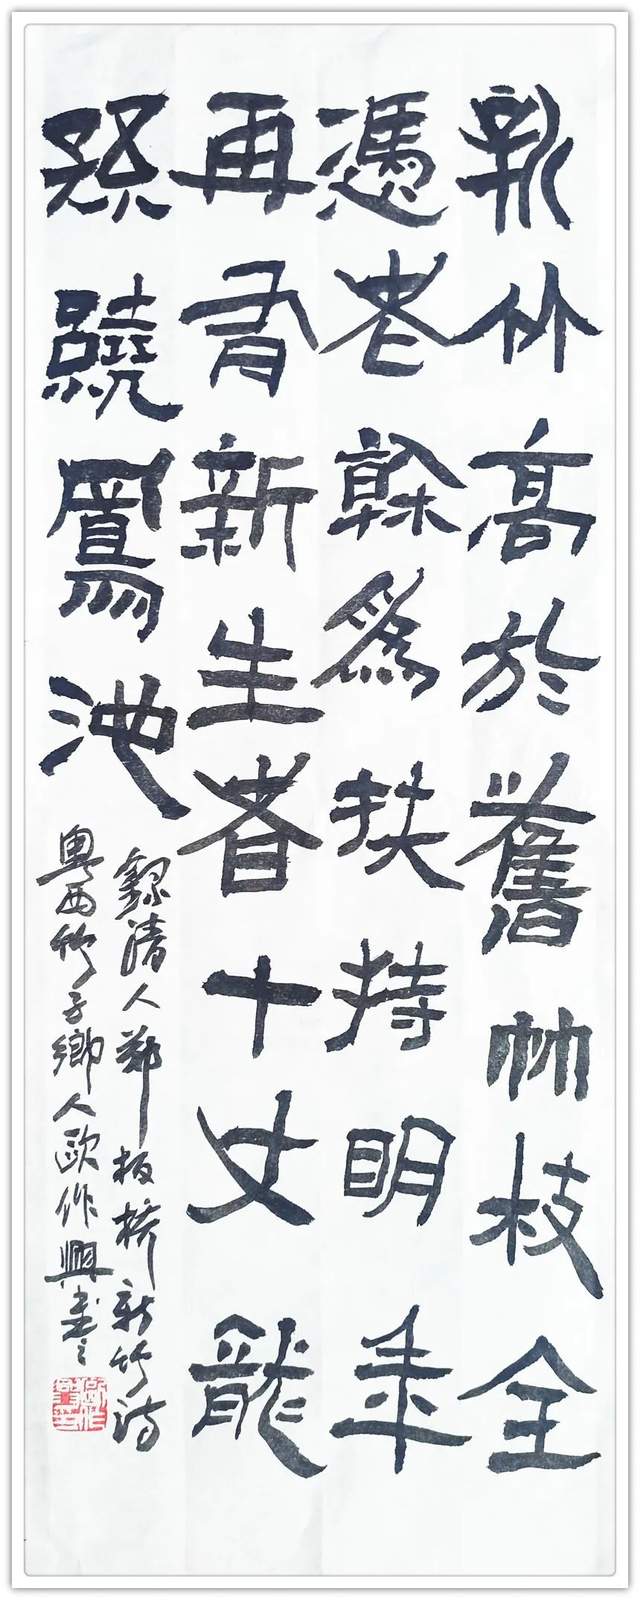 新竹高於舊竹枝全
憑老榦爲扶持明年
再有新生者十丈龍
孫繞鳳池
錄清人鄭板橋新竹詩
粵西竹子鄉人歐作興書之